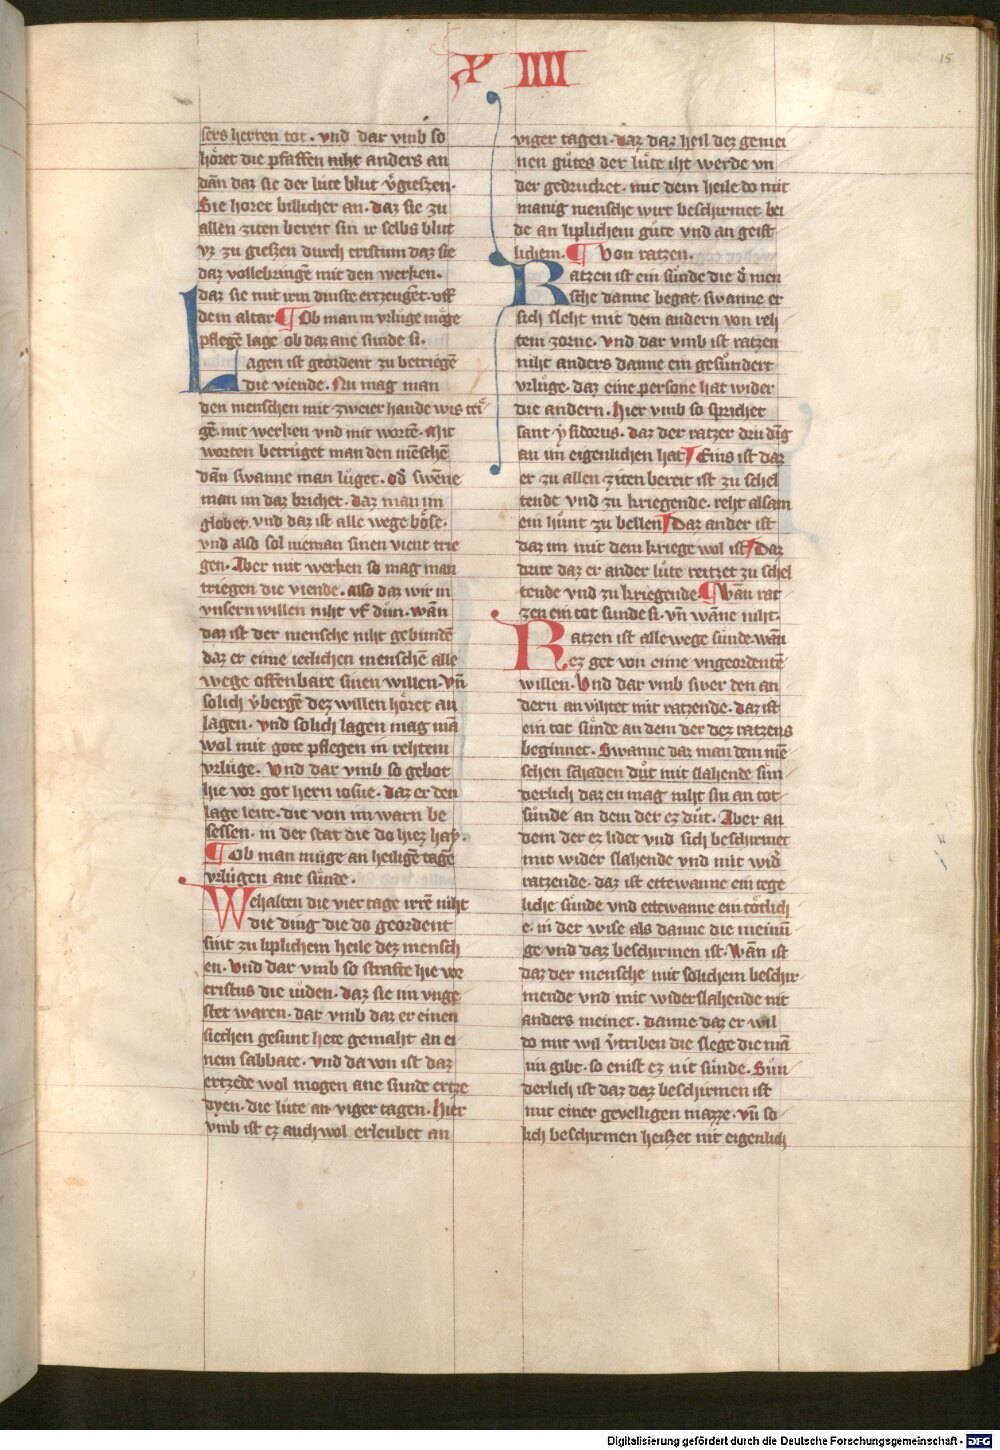 X IIII
15
sers herren tot. vnd dar vmb so
hoͤret die pfaffen niht anders an
dan̄ daz sie der lute blut v̓gieszen.
Sie horet billicher an. daz sie zu
allen ziten bereit sin ir selbs blut
vz zu gieszen durch cristum daz sie
daz vollebringē mit den werken.
daz sie mit irm dinste ertzeugēt. vff
dem altar ¶ Ob man in vrluge moͤge
pflegē lage ob daz ane sunde si.
Lagen ist geordent zu betriegē
die viende. Nu mag man
den menschen mit zweier hande wis trie
gē. mit werken vnd mit wortē. Mit
worten betruͤget man den mēschē
dan̄ swanne man luͤget. od̓ swēne
man im daz brichet. daz man im
globet. vnd daz ist alle wege boͤse.
vnd also sol nieman sinen vient trie
gen. Aber mit werken so mag man
triegen die viende. also daz wir in
vnsern willen niht vf duͤn. wan̄
daz ist der mensche niht gebundē
daz er eime ieclichen menschē alle
wege offenbare sinen willen. Vn̄
solich v̓bergē dez willen hoͤret an
lagen. vnd solich lagen mag mā
wol mit gote pflegen in rehtem
vrluge. Vnd dar vmb so gebot
hie vor got hern iosue. daz er den
lage leite. die von im warn be
sessen. in der stat die do hiez hay.
¶ Ob man muͤge an heiligē tagē
vrluͤgen ane suͤnde.
Wehalten die vier tage irrē niht
die ding die do geordent
sint zu liplichem heile dez mensch
en. Vnd dar vmb so strafte hie vor
cristus die iuden. daz sie im vnge
stet waren. dar vmb daz er einen
siechen gesunt hete gemaht an ei
nem sabbate. vnd da von ist daz
ertzede wol mogen ane sunde ertze
dyen. die luͤte an viger tagen. Hier
vmb ist ez auch wol erleubet an
viger tagen. daz daz heil dez gemei
nen guͤtes der luͤte iht werde vn
der gedrucket. mit dem heile do mit
manig mensche wirt beschirmet. bei
de an liplichem guͤte vnd an geist
lichem. ¶ Von ratzen.
Ratzen ist ein suͤnde die d̓ men
sche danne begat. swanne er
sich sleht mit dem andern von reh
tem zorne. vnd dar vmb ist ratzen
niht anders danne ein gesuͤndert
vrluͤge. daz eine persone hat wider
die andern. Hier vmb so sprichet
sant ysidorus. daz der ratzer driu dīg
an im eigenlichen hat ¶ Eins ist daz
er zu allen ziten bereit ist zu schel
tende vnd zu kriegende. reht alsam
ein huͤnt zu bellen ¶ Daz ander ist
daz im mit dem kriege wol ist ¶ Daz
drite daz er ander luͤte reitzet zu schel
tende vnd zu kriegende ¶ Wan̄ rat
zen ein tot sunde si. vn̄ wāne niht.
Ratzen ist alle wege suͤnde. wan̄
ez get von eime vngeordentē
willen. Vnd dar vmb swer den an
dern an vihtet mit ratzende. daz ist
ein tot suͤnde an dem der dez ratzens
beginnet. Swanne daz man dem mē
schen schaden duͤt mit slahende sun
derlich daz en mag niht sin an tot
suͤnde an dem der ez duͤt. Aber an
dem der ez lidet vnd sich beschirmet
mit wider slahende vnd mit wid̓
ratzende. daz ist ettewanne ein tege
liche suͤnde vnd ettewanne ein toͤtlich
e. in der wise als danne die meinū
ge vnd daz beschirmen ist. Wan̄ ist
daz der mensche mit solichem beschir
mende vnd mit widerslahende nit
anders meinet. danne daz er wil
do mit wil v̓triben die slege die mā
im gibt. so enist ez nit suͤnde. Suͤn
derlich ist daz daz beschirmen ist
mit einer gevelligen mazze. vn̄ so
lich beschirmen heiszet nit eigenlich
Digitalisierung gefördert durch die Deutsche Forschungsgemeinschaft - DFG